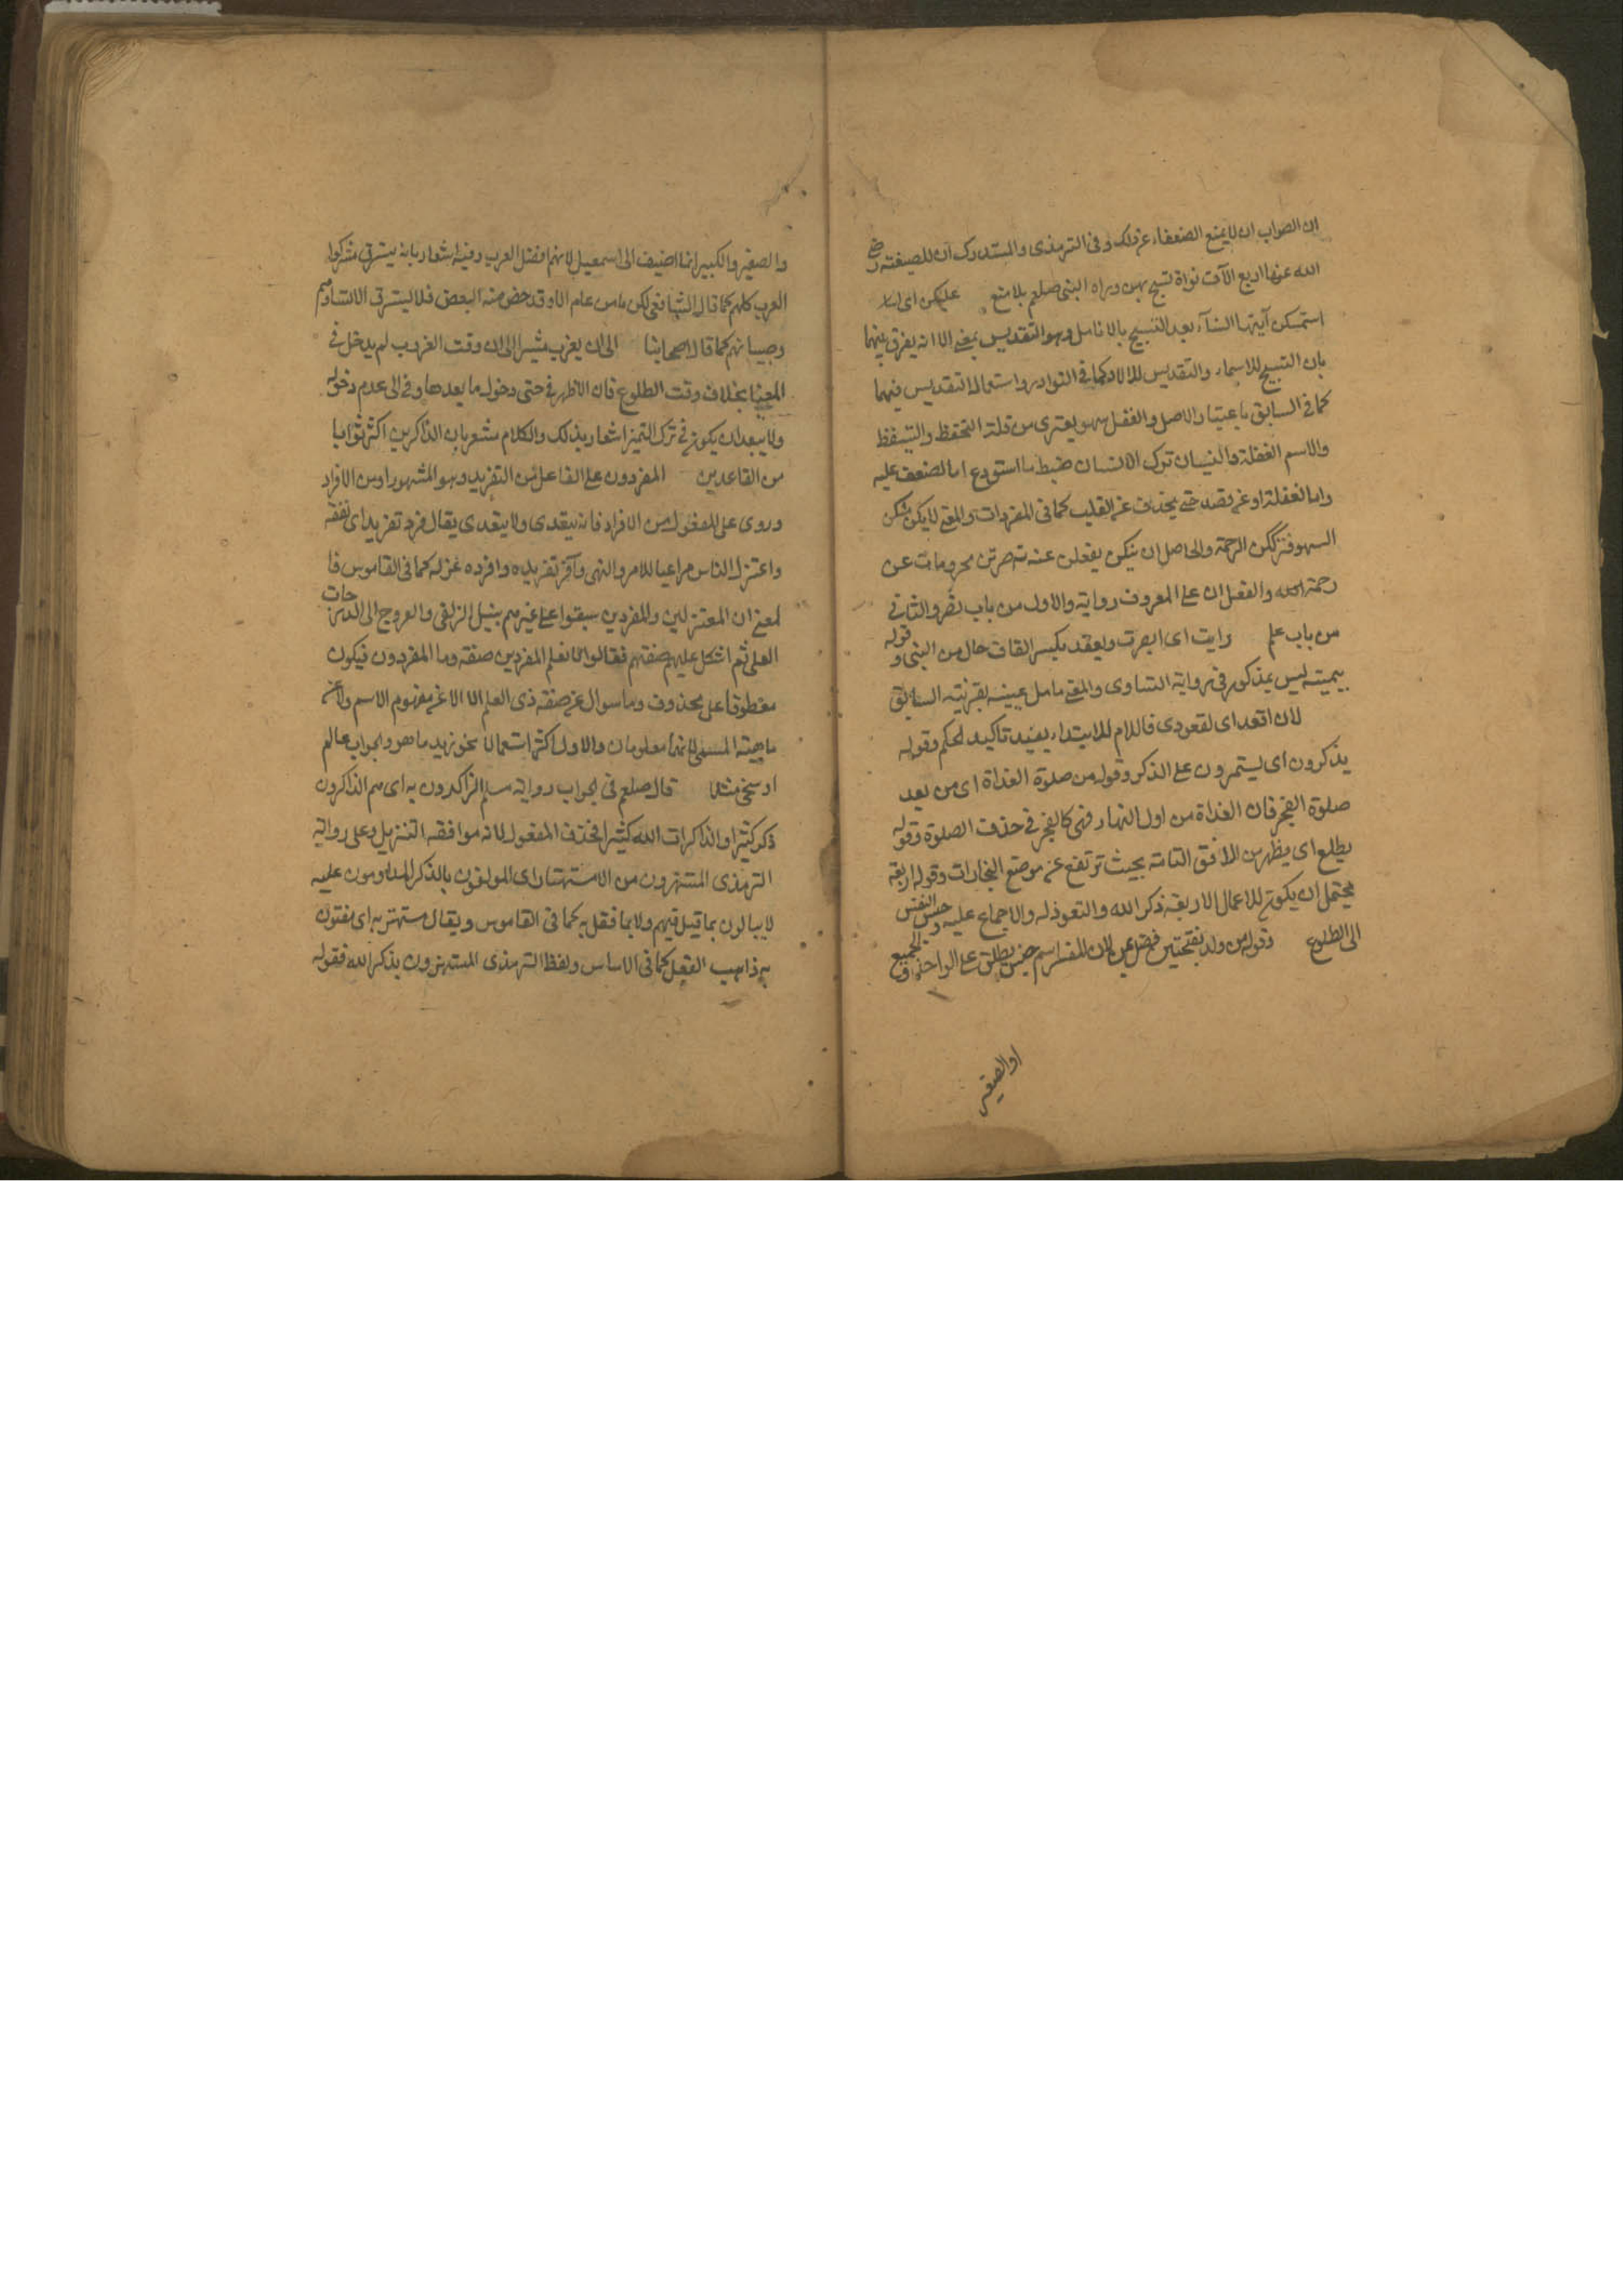 ان الصواب ان لا يمنع الضعفاء عن ذلك وفى الترمذى والمستدرك ان للصفية رضى
الله عنها اربع الآف نواة تسبح بهن وراه النبى صلعم بلا منع عليكن اى
استمسكن آيتها النسآء بعد التسبيح بالانامل وهو التقديس بمعنى الا انه يفرق بينهما
بان التسبيح للاسماء والتقديس للالاء كما فى النوادر واستعمال التقديس فيهما
كما فى السابق باعتبار الاصل والغفل سهو يعترى من قلة التحفظ والتيقظ
والاسم الغفلة والنسيان ترك الانسان ضبط ما استودع اما لضعف عليه
واما لغفلة او عن قصد حتى يحذف عن القلب كما فى المفردات والمعنى لا يكن منكن
السهو فتركن الرحمة والحاصل ان منكن يفعلن عنه تصرن محرومات عن
رحمة الله والفعلان على المعروف رواية والاول من باب نصر والثانى
من باب علم رايت اى ابصرت ويعقد بكسر القاف حال من النبى وقوله
بيمينه ليس بمذكور فى رواية النساوى والمعنى بانامل يمينه بقرينة السابق
لان اقعد اى لقعودى فاللام للابتداء يفيد تاكيد الحكم وقوله
يذكرون اى يستمرون على الذكر وقوله من صلوة الغداة اى من بعد
صلوة الفجر فان الغداة من اول النهار فهى كالفجر فى حذف الصلوة وقوله
يطلع اى يظهر من الافق التامة بحيث ترتفع عن موضع البخارات وقوله اربعة
يحتمل ان يكون للاعمال الاربعة ذكر الله والتعوذ له والاجماع عليه وحبس النفس
الى الطلوع وقوله من ولد بفتحتين فضل على لان المفسر اسم جنس يطلق على الواحد والجميع
والصغير
والصغير والكبير انما اضيف الى اسمعيل لانهم افضل العرب وفيه اشعار بانه يسترق مشركوا
العرب كلهم كما قال الشافعى لكن ما من عام الا وقد خص منه البعض فلا يسترق الا نساؤهم
وصبيانهم كما قال اصحابنا الى ان يغرب مشيرا الى ان وقت الغروب لم يدخل فى
المغيا بخلاف وقت الطلوع فان الاظهر فى حتى دخول ما بعدها وفى الى عدم دخوله
ولا يبعد ان يكون فى ترك التميز اشعار بذلك والكلام مشعر بان الذاكرين اكثر ثوابا
من القاعدين المفردون على الفاعل من التفريد وهو المشهور او من الافراد
وروى على المفعول من الافراد فانه يتعدى ولا يتعدى يقال فرد تفريدا اى تفقه
واعتزل الناس مراعيا للامر والنهى وآفر تفريده وافرده عزله كما فى القاموس فا
لمعنى ان المعتزلين والمفردين سبقوا على غيرهم بنيل الزلفى والعروج الى الدرجات
العلى ثم اشكل عليهم صفتهم فقالوا انا نعلم المفردين صفته وما المفردون فيكون
معطوفا على محذوف وما سوال عن صفة ذى العلم الا لا عن مفهوم الاسم ولا عن
ماهية المسمى لانهما معلومان والاول اكثر استعمالا نحو زيد ما هو والجواب عالم
او سخى مثلا قال صلعم فى الجواب رواية مسلم الذاكرون به اى هم الذاكرون
ذكر كثيرا والذاكرات الله كثيرا فحذف المفعول لانه موافقه التنزيل وعلى رواية
الترمذى المستهترون من الاستهتار اى المولعون بالذكر المداومون عليه
لا يبالون بما قيل فيهم ولا بما فعل به كما فى القاموس ويقال مستهتر به اى مفتون
به ذاهب العقل كما فى الاساس ولفظ الترمذى المستهترون بذكر الله فقوله